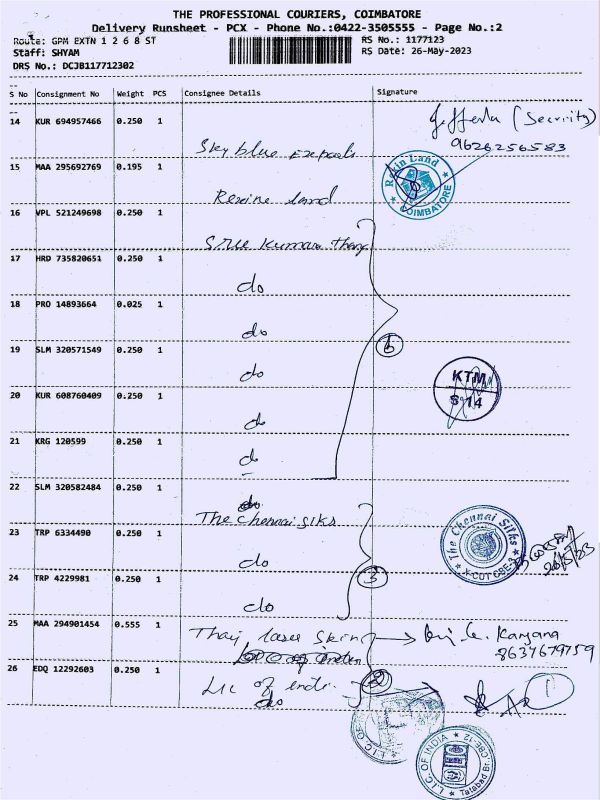 THE PROFESSIONAL COURIERS, COIMBATORE
Delivery Runsheet - PCX - Phone No.:0422-3505555 - Page No.:2
Route: GPM EXTN 1 2 6 8 ST
RS No.: 1177123
Staff: SHYAM
RS Date: 26-May-2023
DRS No.: DCJB117712302
S No Consignment No Weight PCS Consignee Details Signature
14 KUR 694957466 0.250 1
(Security)
9626256583
Sky blue Exports
15 MAA 295692769 0.195 1
Rexin Land
COIMBATORE
Rexine land
16 VPL 521249698 0.250 1
Sree Kumaran Thang
17 HRD 735820651 0.250 1
do
18 PRO 14893664 0.025 1
do
6
19 SLM 320571549 0.250 1
do
KTM
S 14
20 KUR 608760409 0.250 1
do
21 KRG 120599 0.250 1
do
22 SLM 320582484 0.250 1
The Chennai silks
23 TRP 6334490 0.250 1
The Chennai Silks
do
24 TRP 4229981 0.250 1
3
do
25 MAA 294901454 0.555 1
8637679759
26 EDQ 12292603 0.250 1
LIC of
2
1
do
L.I.C. OF
L.I.C. OF INDIA
CBE-12
Tatabad Br.